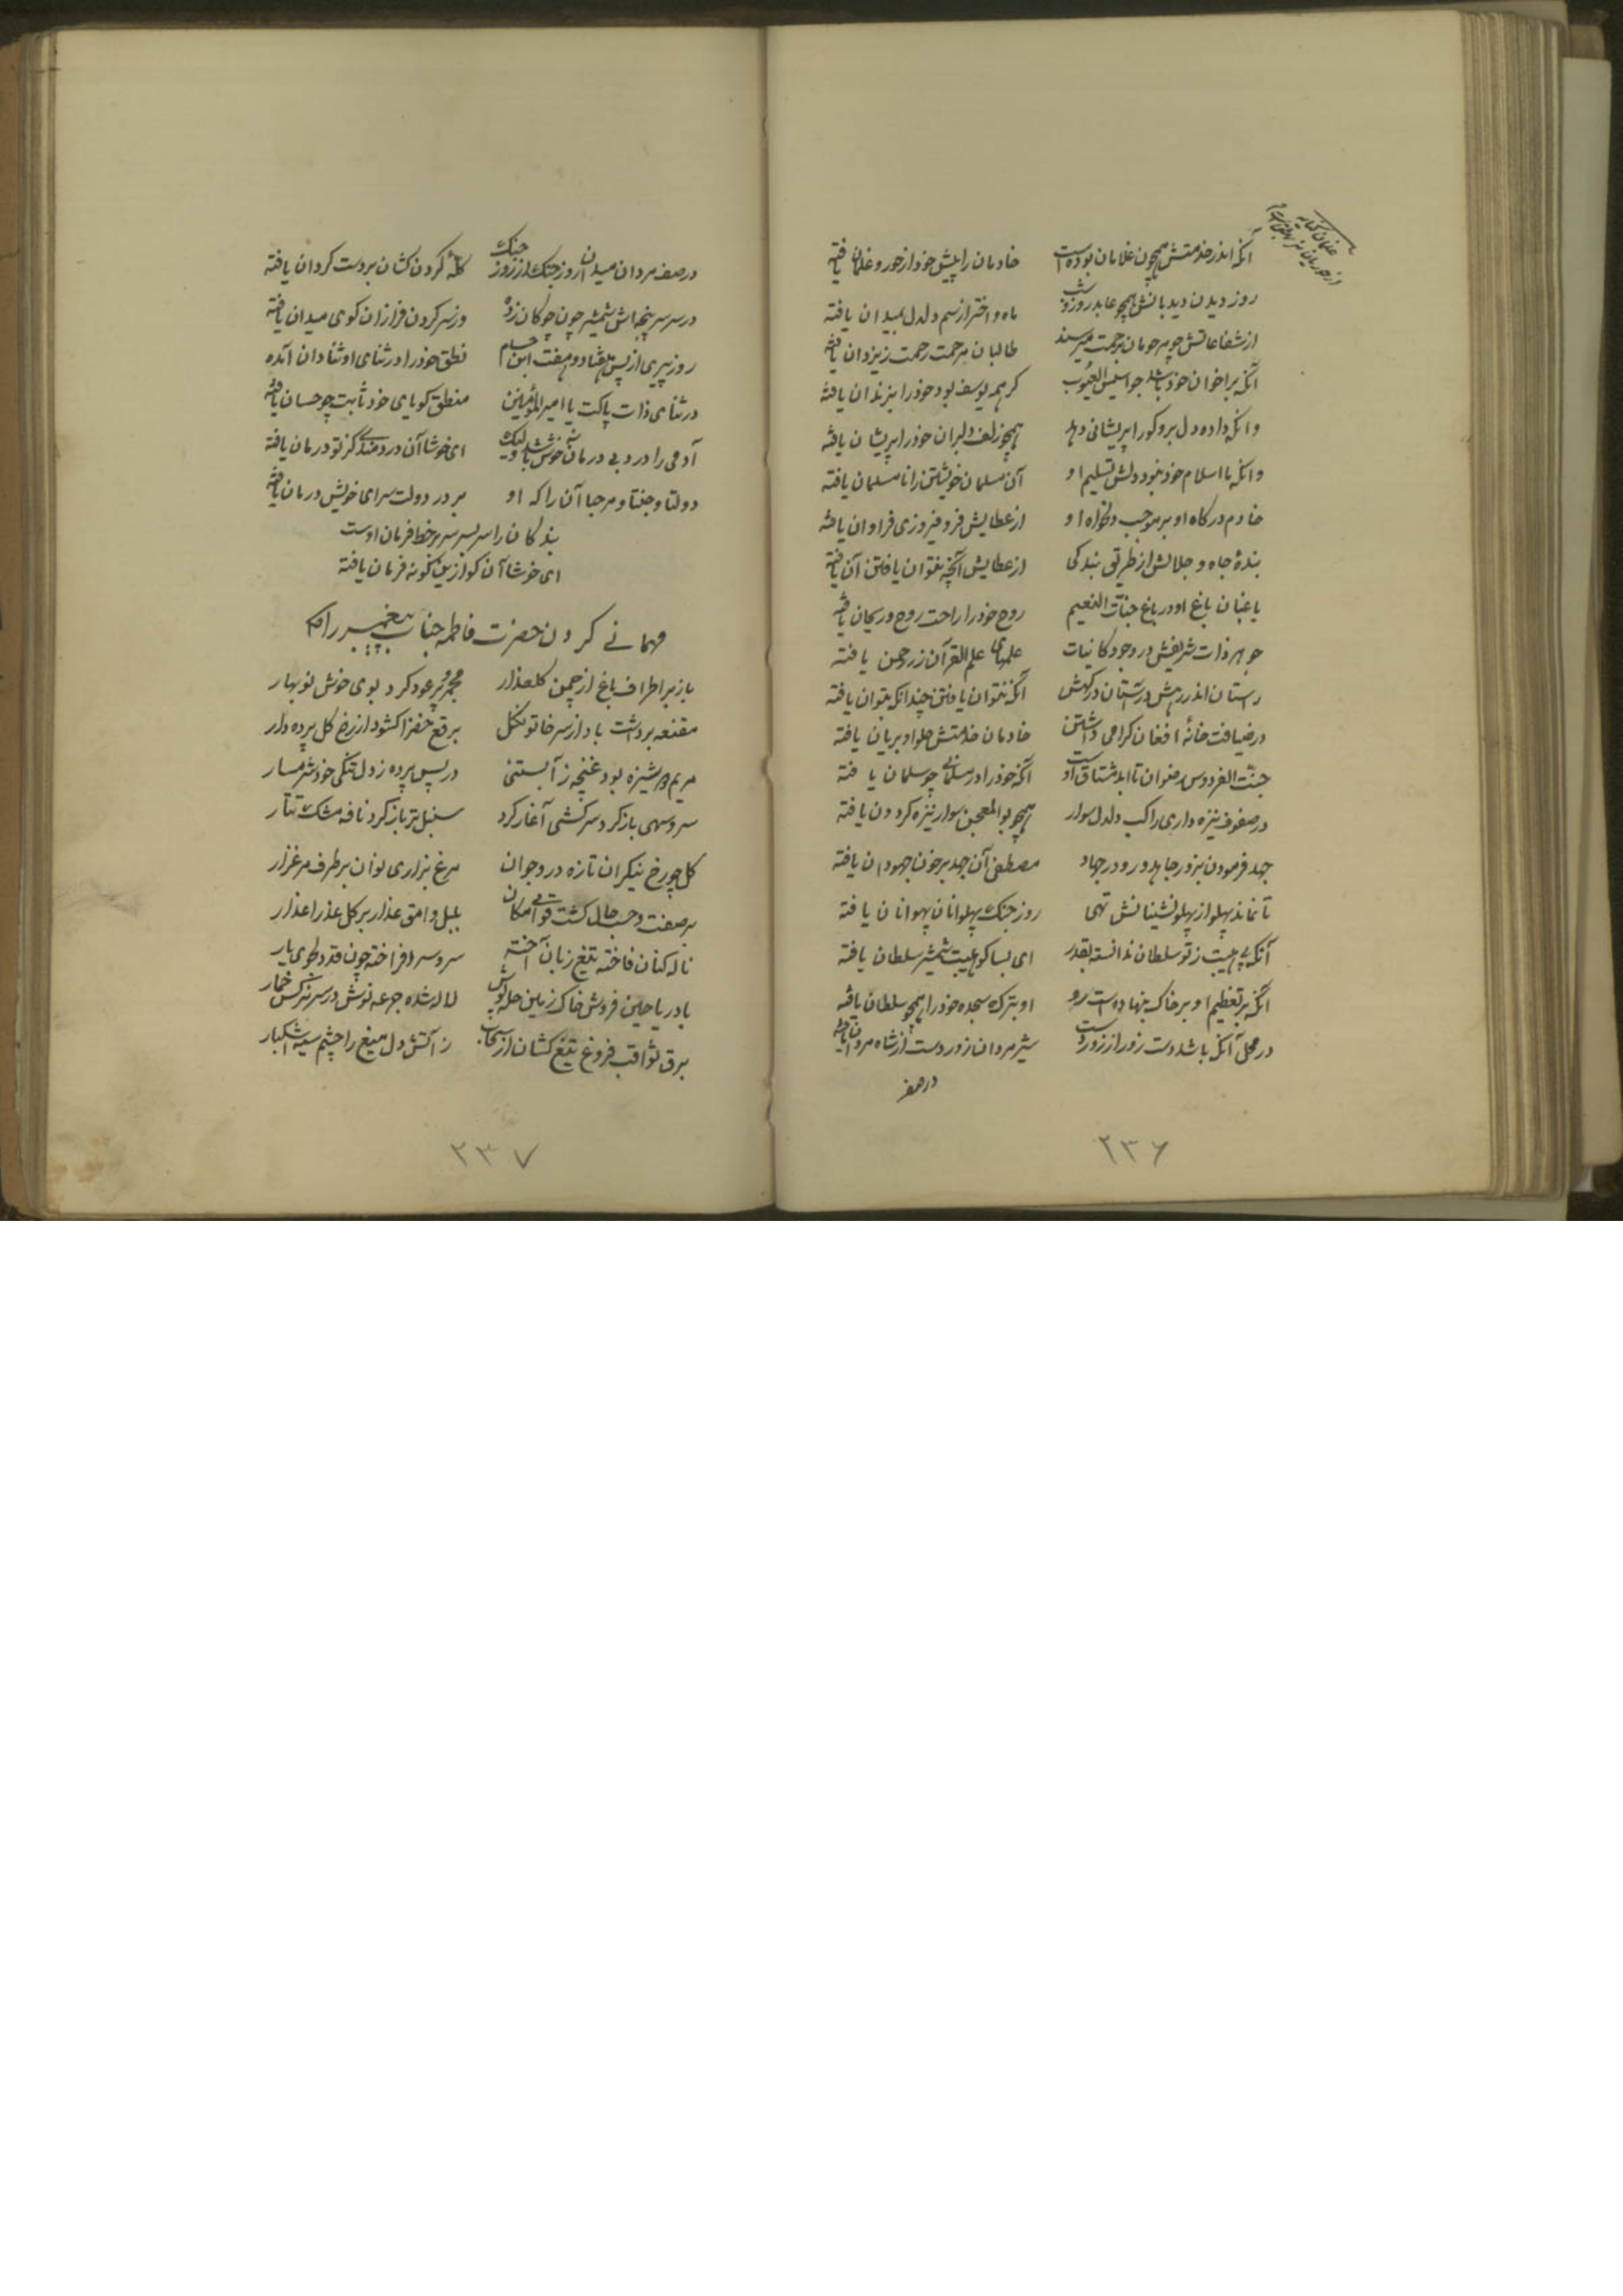 آنکه اندر خدمتش همچون غلامان بوده است خادمان را پیش خود از حور و غلمان یافته
روز دیدن دیدبانش همچو عابد روز و شب ماه و اختر از سم دلدل بمیدان یافته
از شفاعاتش چو مرحومان برحمت میرسند طالبان مرحمت رحمت ز یزدان یافته
آنکه بر اخوان خود باشد جواسیس العیوب کر همه یوسف بود خود را بزندان یافته
وانکه داده دل برو کورا پریشانی دهد همچو زلف دلبران خود را پریشان یافته
وانکه با اسلام خود نبود دلش تسلیم او آن مسلمان خویشتن را نامسلمان یافته
خادم درکاه او بر موجب دلخواه او از عطایش فر و فیروزی فراوان یافته
بندهٔ جاه و جلالش از طریق بندکی از عطایش آنچه نتوان یافتن آن یافته
باغبان باغ او در باغ جنات النعیم روح خود را راحت روح و ریحان یافته
جوهر ذات شریفش در وجود کانیات علمهای علم القرآن ز رحمن یافته
راستان اندر رهش در آستان درکهش آنکه نتوان یافتن چندانکه بتوان یافته
در ضیافت خانهٔ افغان کرامی داشتن خادمان خدمتش حلوا و بریان یافته
جنت الفردوس رضوان تا ابد مشتاق اوست آنکه خود را در مسلمانی چو سلمان یافته
در صفوف نیزه داری راکب دلدل سوار همچو بوالمعجن سوار نیزه کردون یافته
جهد فرمودن بزور جاهد و رو در جهاد مصطفی آن جهد بر خون جهودان یافته
تا نماند پهلو از پهلو نشینانش تهی روز جنک پهلوانان پهلوانان یافته
آنکه بی هیبت ز تو سلطان ندانسته بقدر ای بسا کو هیبت شمشیر سلطان یافته
آنکه بر تعظیم او بر خاک بنهاده است رو او بترک سجده خود را همچو سلطان یافته
در محل آنکه باشد دست زور از زور دست شیرمردان زور دست از شاه مردان یافته
در صف
۲۳۶
در صف مردان میدان روز جنک از روز جنک کلهٔ کردن کشان بر دست کردان یافته
در سر سرپنجه اش شمشیر چون چوکان زده وز سر کردن فرازان کوی میدان یافته
روز پیری از پس هفتاد و هفت ابن حسام نطق خود را در ثنای او ثنادان آمده
در ثنای ذات پاکت یا امیرالمؤمنین منطق کویای خود ثابت چو حسان یافته
آدمی را درد بی درمان خوش باشد ولیک ای خوشا آن دردمندی کز تو درمان یافته
دولتا و جنتا و مرحبا آن را که او بر در دولت سرای خویش درمان یافته
بندکان را سر بسر سر بر خط فرمان اوست
ای خوشا آن کو ازین کونه فرمان یافته
مهمانی کردن حضرت فاطمه جناب پیغمبر را
باز بر اطراف باغ از چمن کلعذار مجمر پر عود کرد بوی خوش نوبهار
مقنعه برداشت باد از سر خاتون کل برقع خضرا کشود از رخ کل پرده دار
مریم دوشیزه بود غنچه ز آبستنی در پس پرده ز دل تنکی خود شرمسار
سرو سهی باز کرد سرکشی آغاز کرد سنبل تر باز کرد نافه مشک تتار
کل چو رخ نیکوان تازه در و جوان مرغ بزاری نوان بر طرف مرغزار
بر صفت و حسب حال کشت بلبل وامق عذار بر کل عذرا عذار
ناله کنان فاخته تیغ زبان آخته سرو سر افراخته چون قد دلجوی یار
باد ریاحین فروش خاک زمین حله پوش لاله شده جرعه نوش در سر نرکس خمار
برق ثواقب فروغ تیغ کشان از سحاب ز آتش دل میغ را چشم سیه اشکبار
۲۳۷